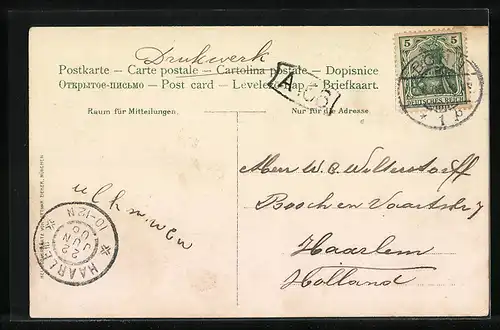 Drukwerk
Postkarte — Carte postale — Cartolina postale — Dopisnice
Открытое письмо — Post card — Levelező-Lap — Briefkaart.
A. 06
Raum für Mitteilungen.
Nur für die Adresse.
5 5
DEUTSCHES REICH
Herr W. C. Wolterstorff
Bosch en Vaartstr 7
Haarlem
Holland
HAARLEM
10-12N
2 JUN 06